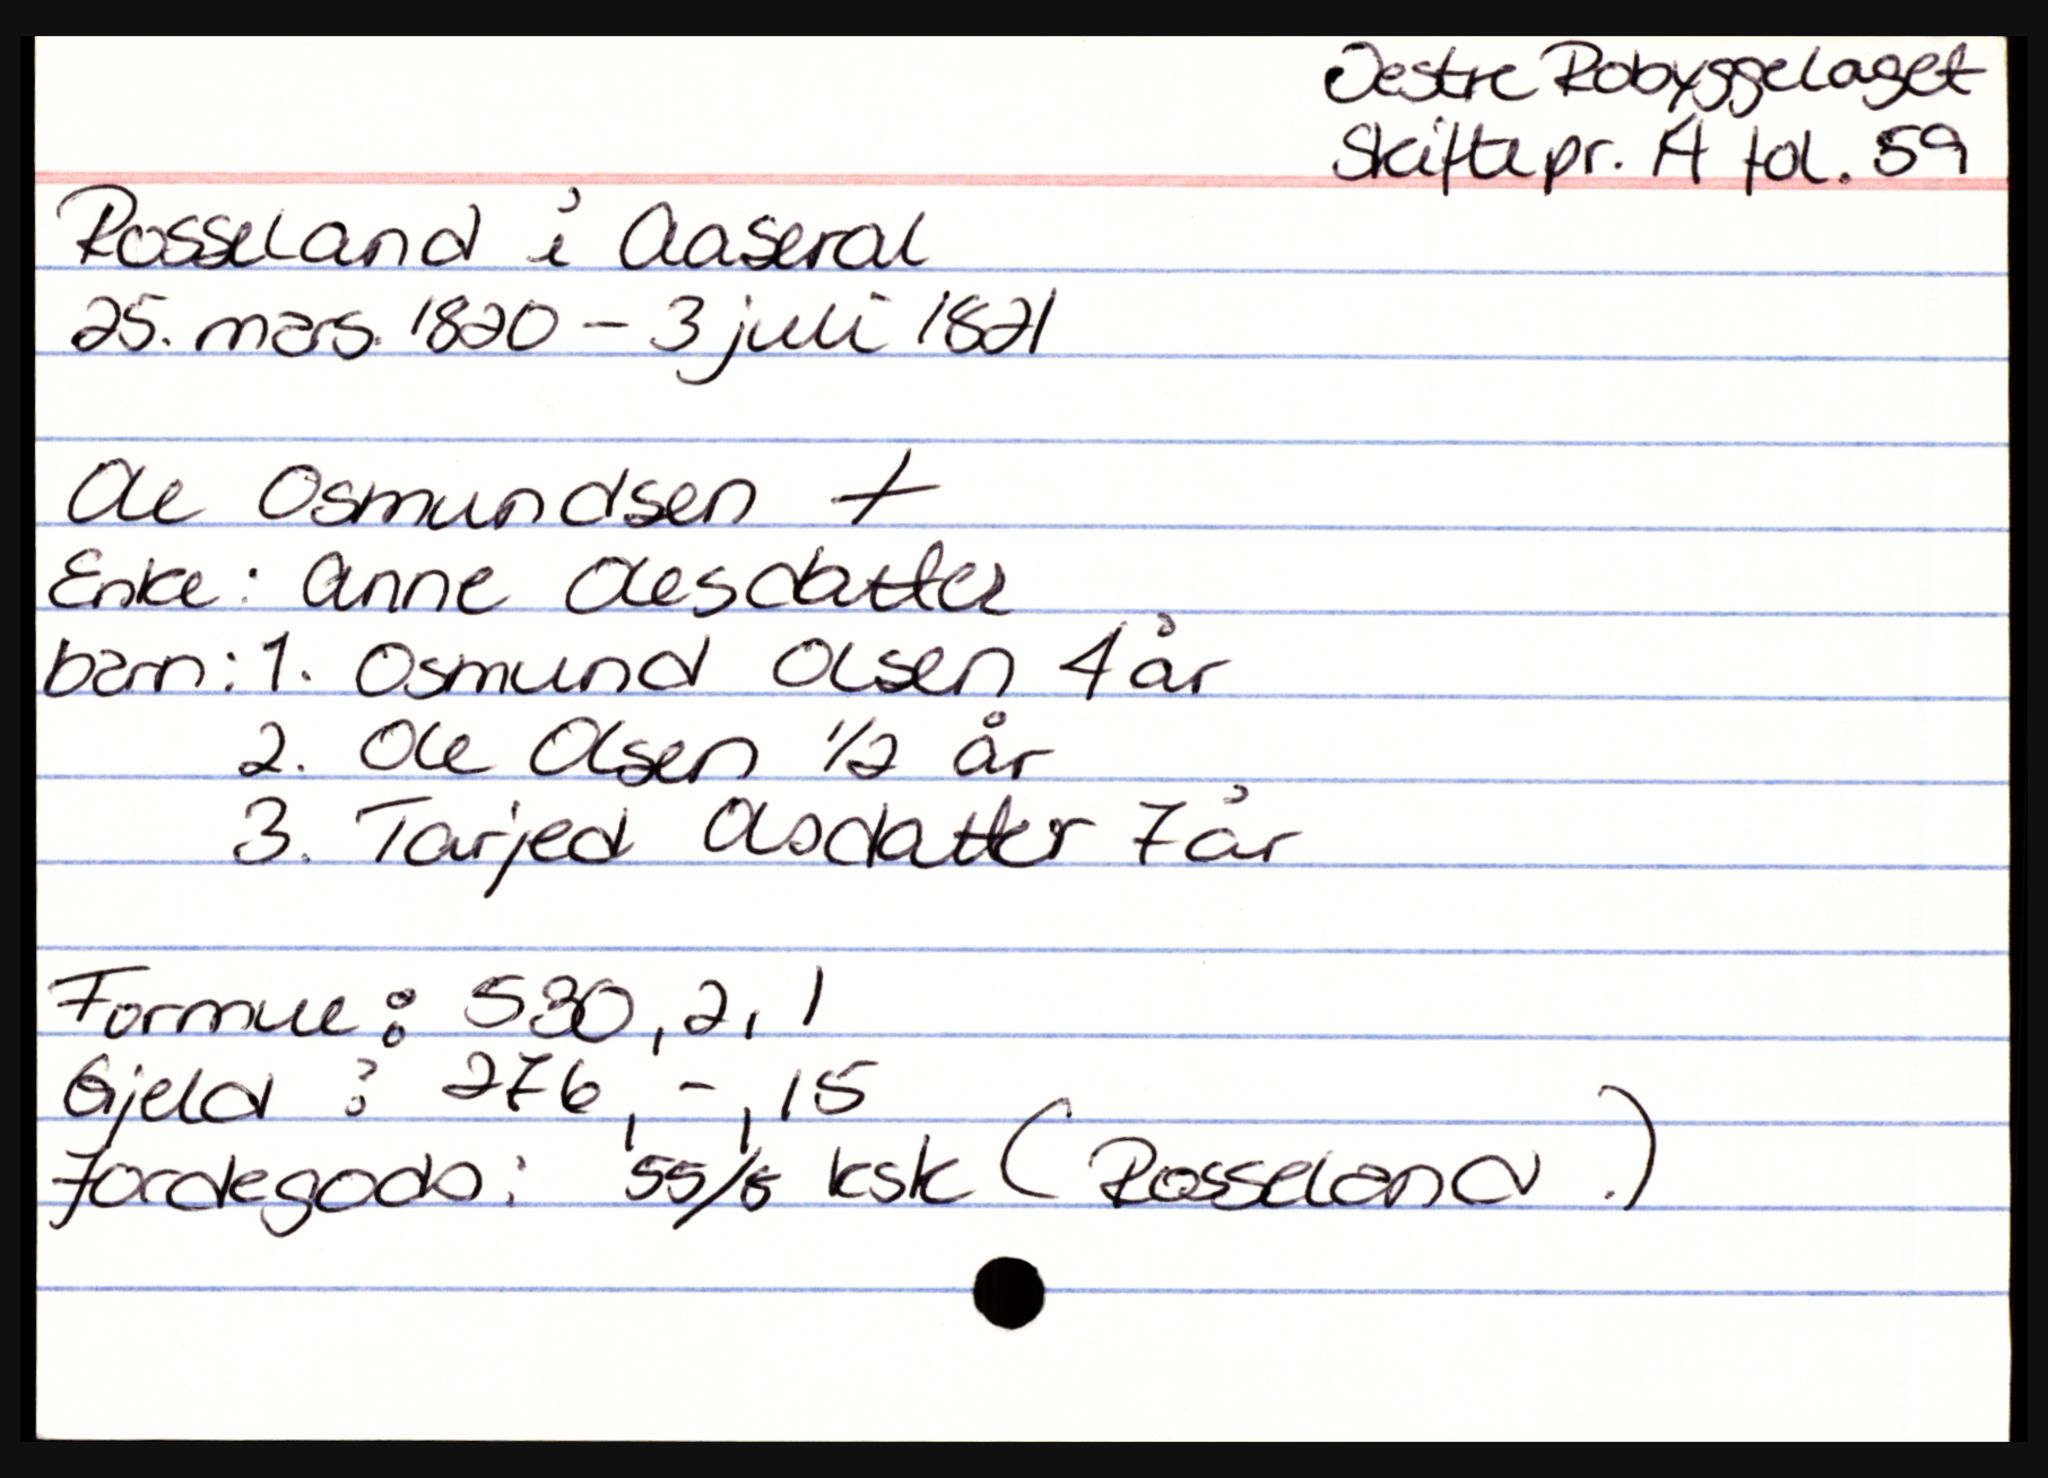 Vestre Robyggelaget
Skiftepr. A fol. 59
Rosseland i Aaseral
25. mars. 1820 – 3 juli 1821
Ole Osmundsen +
Enke: Anne Olesdatter
barn: 1. Osmund Olsen 4 år
2. Ole Olsen 1/2 år
3. Tarjed Olsdatter 7 år
Formue: 530, 2, 1
Gjeld: 276, -, 15
Jordegods: 55/8 ksk (Rosseland.)